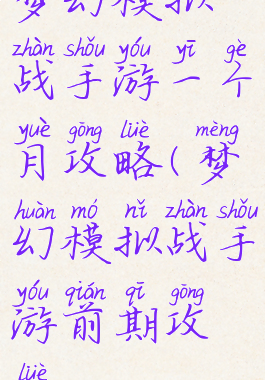 梦幻模拟
zhàn shǒu yóu yī gè
战手游一个
yuè gōng lüè mèng
月攻略(梦
huàn mó nǐ zhàn shǒu
幻模拟战手
yóu qián qī gōng
游前期攻
lüè